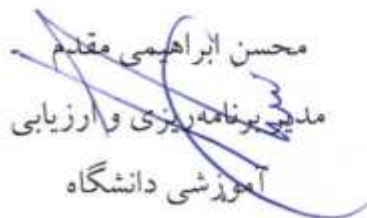 محسن ابراهیمی مقدم
مدیر برنامه‌ریزی و ارزیابی
آموزشی دانشگاه